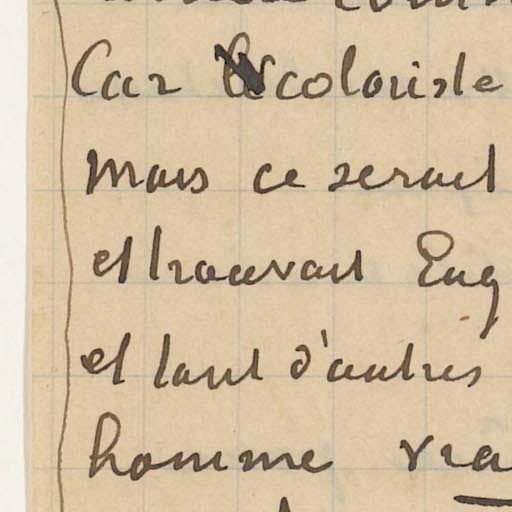 Car coloriste
mais ce serait
et trouvait Eug
et tant d'autres
homme vra